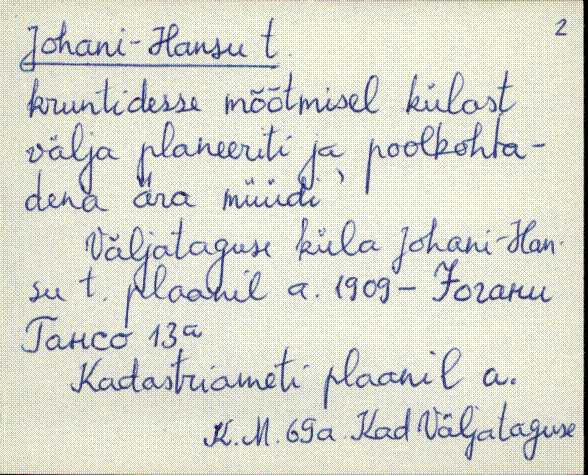 2
Johani-Hansu t.
kruntidesse mõõtmisel külast
välja planeeriti ja poolkohta-
dena ära müüdi
Väljataguse küla Johani-Han-
su t. plaanil a. 1909 – Йогани
Гансо 13а
Kadastriameti plaanil a.
K.M. 69a Kad Väljataguse